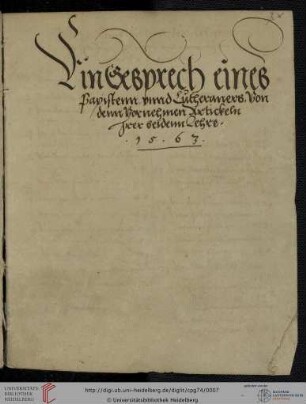 Ein Gesprech eines
Papistenn vnnd Lutheraners. Von
denn Vornehmen Artickeln
Irer beidenn Lehre.
. 1 5 . 6 3 .
UNIVERSITÄTS-
BIBLIOTHEK
HEIDELBERG
http://digi.ub.uni-heidelberg.de/diglit/cpg74/0007
© Universitätsbibliothek Heidelberg